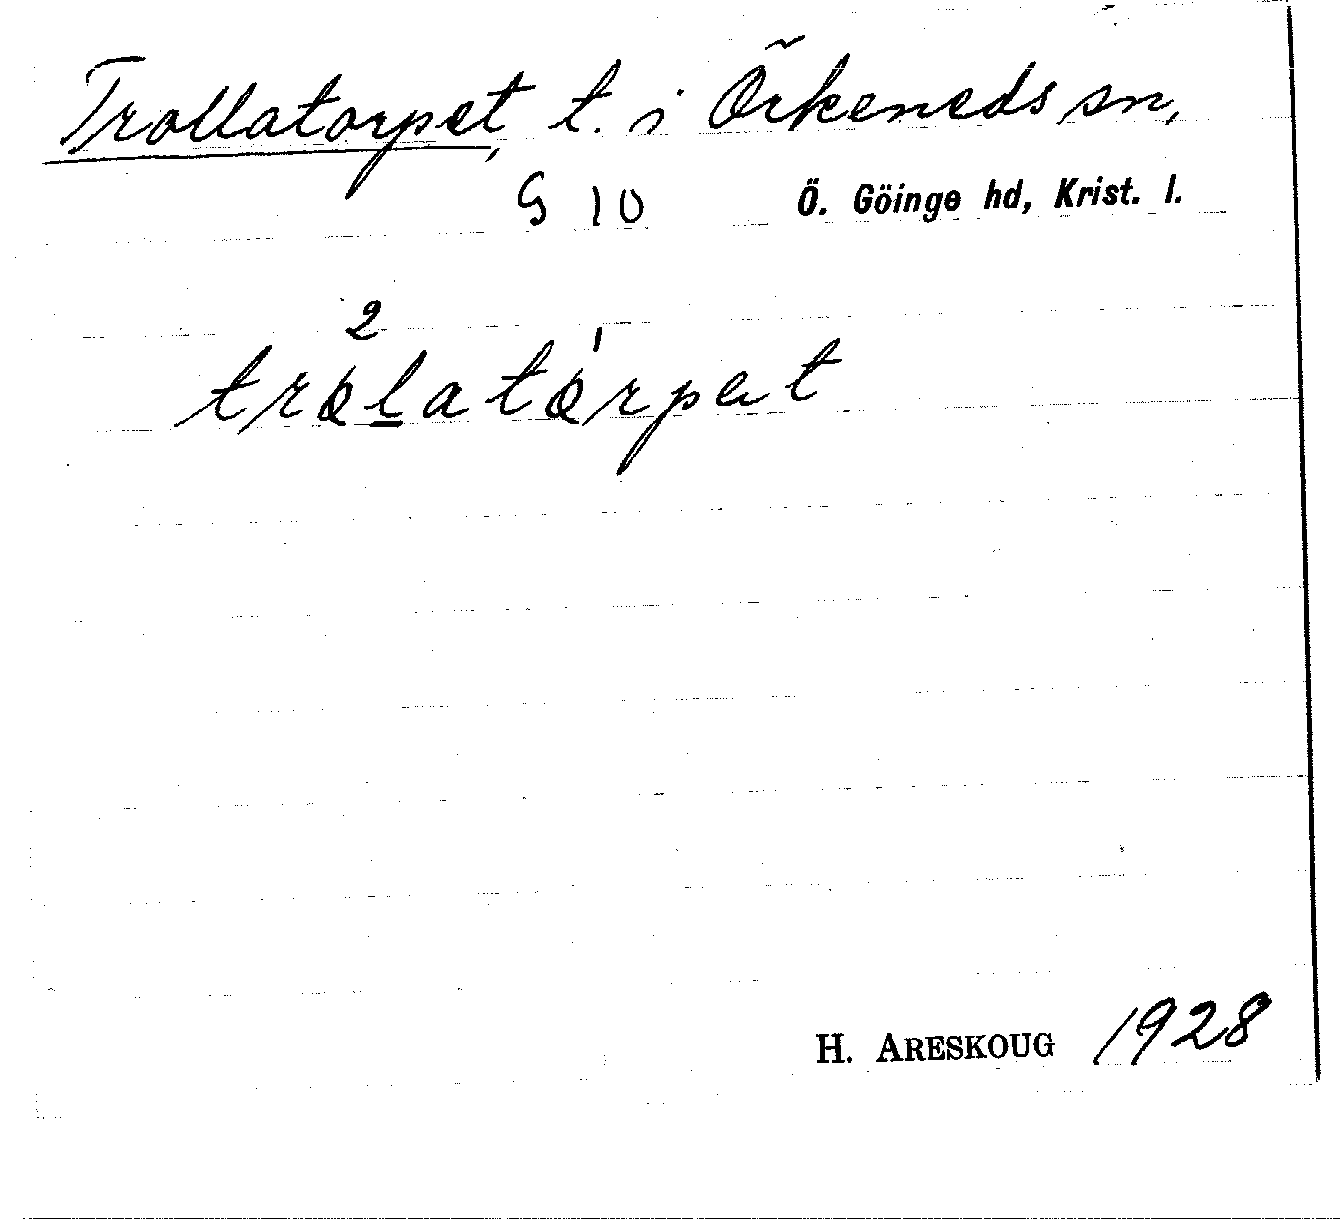 Trollatorpet, t. i Örkeneds sn,
G 10 Ö. Göinge hd, Krist. l.
2 1
trølatørpet
H. ARESKOUG 1928